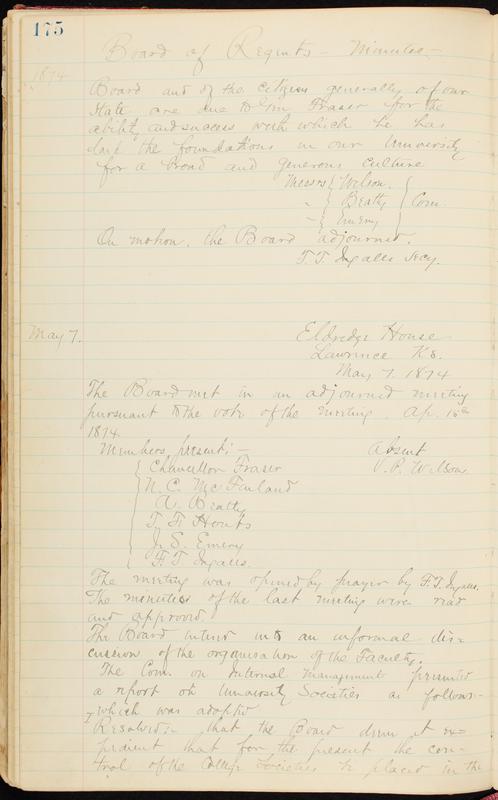 175
Board of Regents — Minutes —
1874
Board and of the citizens generally of our
State are due to Gen Fraser for the
ability and success with which he has
laid the foundations in our University
for a broad and generous culture
Messrs { Wilson. }
" { Beatty } Com.
" { Emery }
On motion, the Board adjourned.
F. T. Ingalls Secy.
May 7.
Eldredge House
Lawrence Ks.
May 7. 1874
The Board met in an adjourned meeting
pursuant to the vote of the meeting Ap. 15th
1874
Members present; — Absent
Chancellor Fraser V. P. Wilson
N. C. McFarland
A. Beatty
F. T. Ingalls.
The meeting was opened by prayer by F. T. Ingalls.
The minutes of the last meeting were read
and approved.
The Board entered into an informal dis=
cussion of the organisation of the Faculty.
The Com. on Internal Management presented
a report on University Societies as follows—
which was adopted
Resolved:— that the Board deem it ex=
pedient that for the present the con=
trol of the College Societies be placed in the